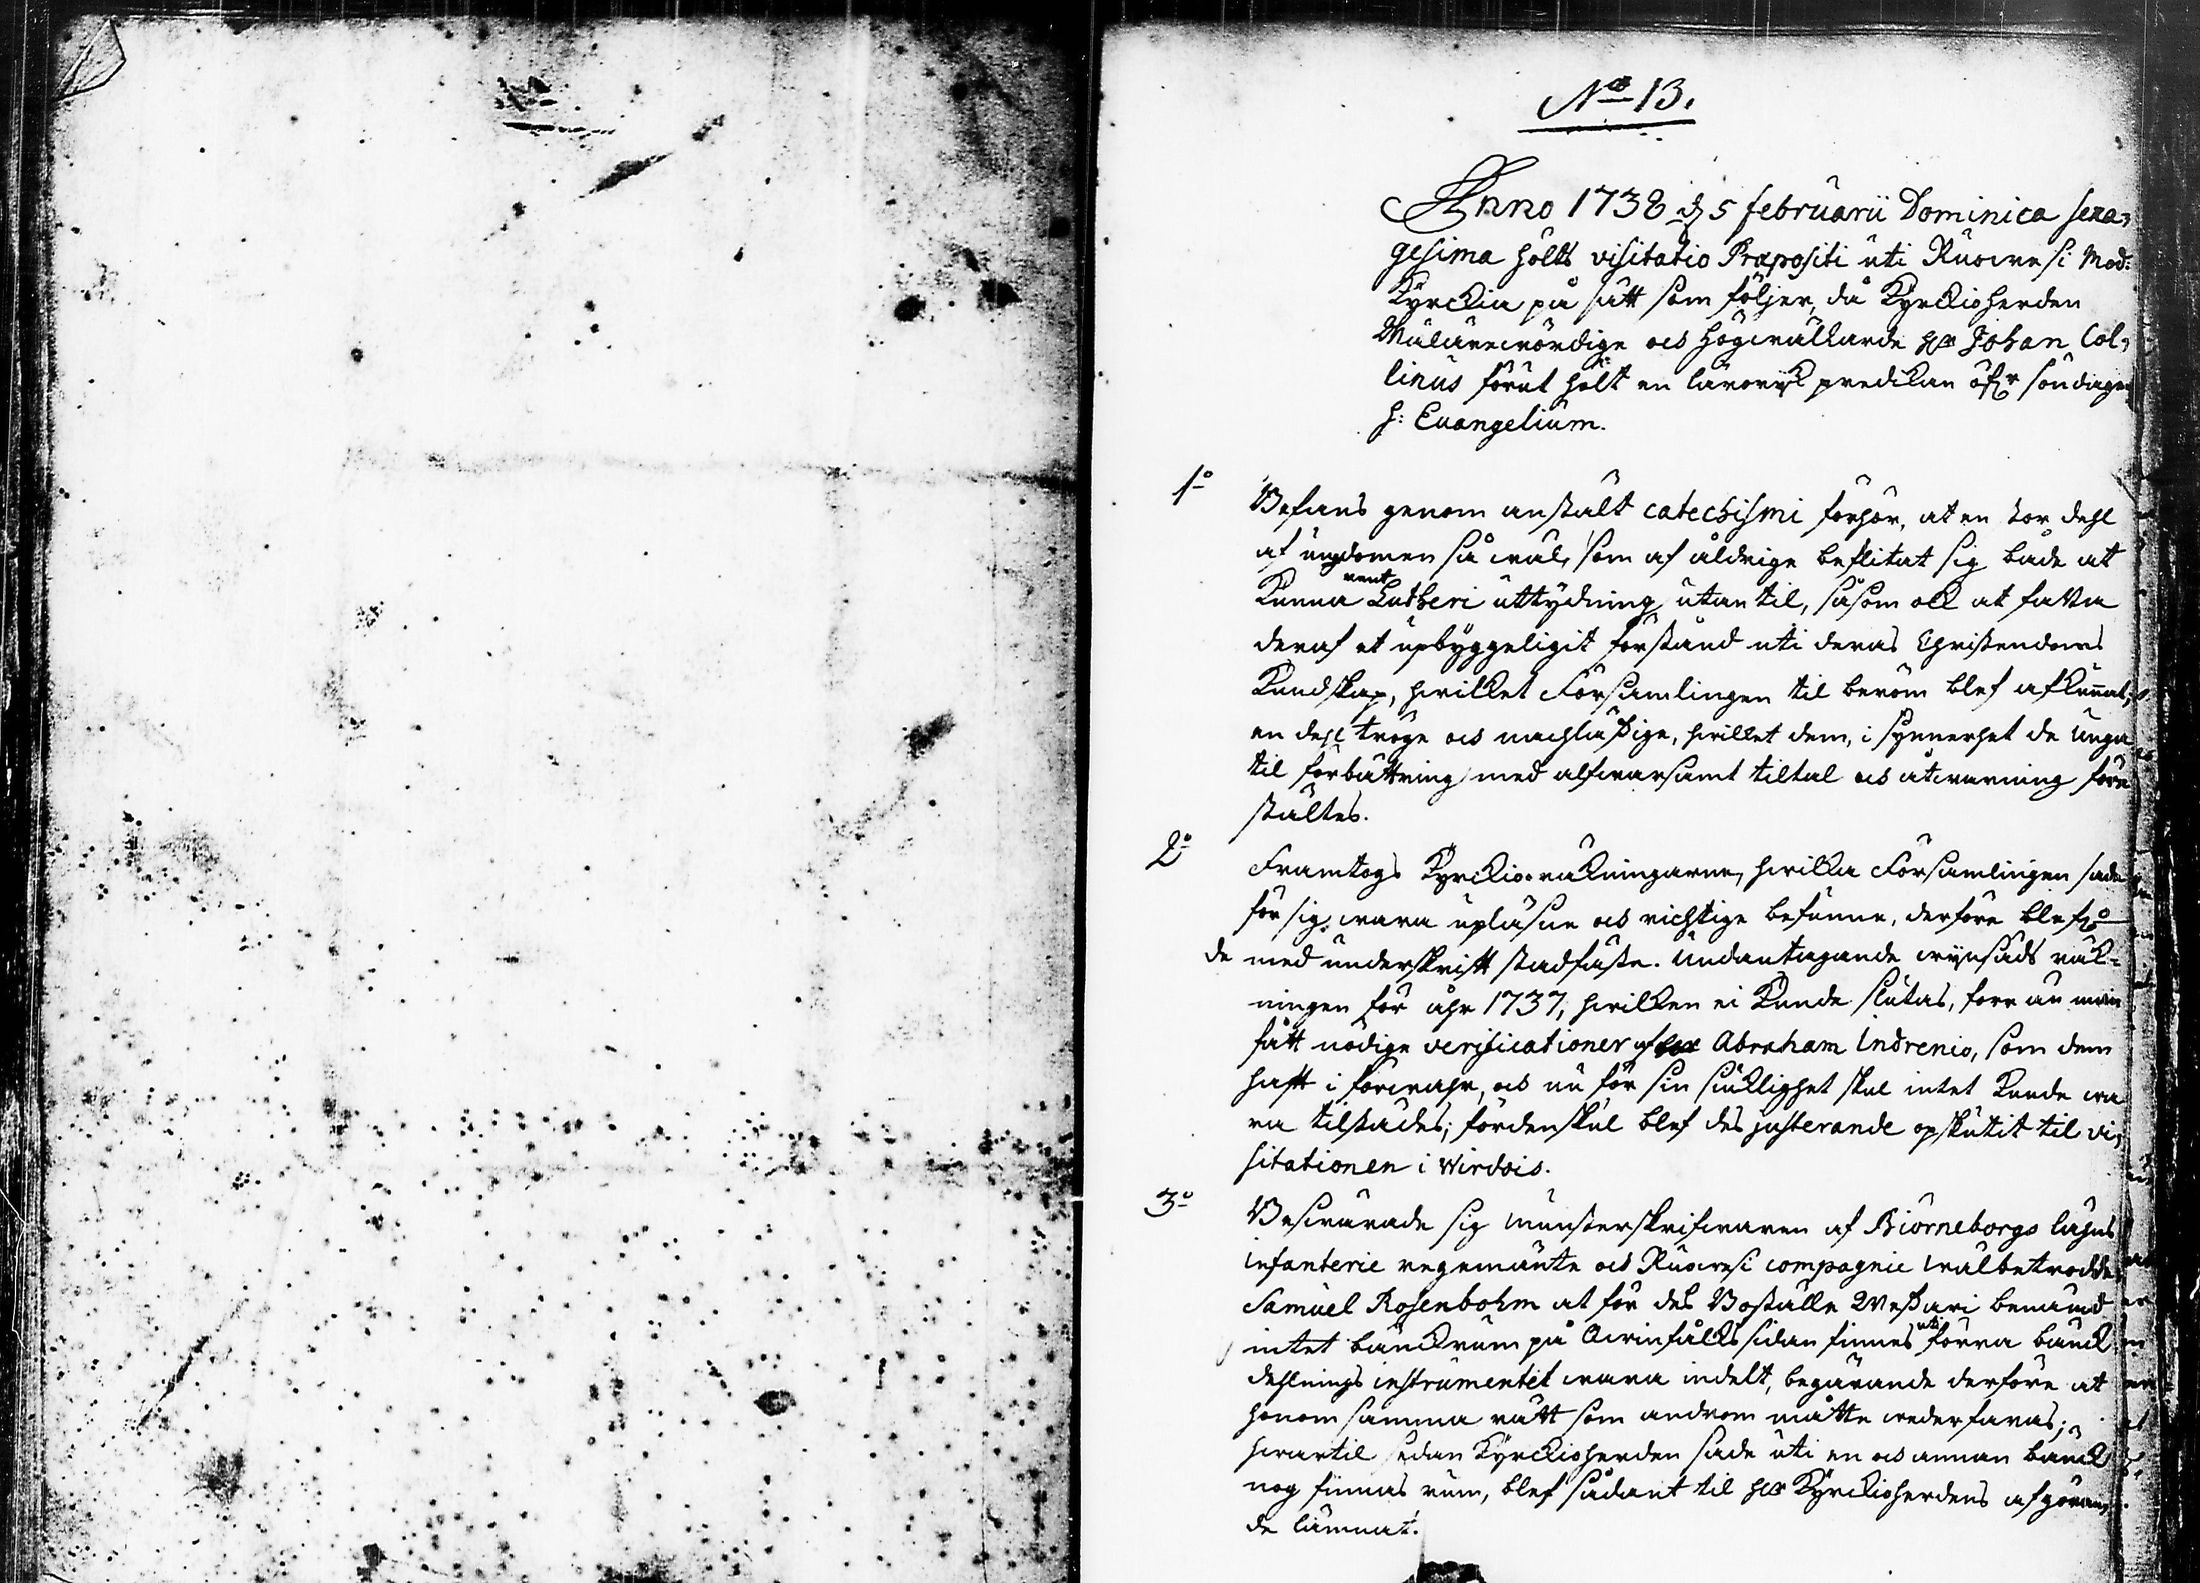 No 13.
Anno 1738 d 5 februarii Dominica sexa=
gesima hölts visitatio Præpositi uti Ruowesi Mod:
Kyrckia på sätt som följer, då Kyrckioherden
Wälärewördige och Högwällärde H:r Johan Col=
linus förut hölt en lärorijk predikan öfr söndagen
h: Euangelium.
1:o Befans genom anstält catechismi förhör, at en stor dehl
af ungdomen så wäl, som af åldrige beflitat sig både at
kunna rent Lutheri uttydning utantil, såsom ock at fatta
deraf et upbyggeligit förstånd uti deras Christendoms
kundskap, hwilket Församlingen til beröm blef afkunnat;
en dehl tröge och machlåtige, hwilket dem, i synnerhet de unga
til förbättring med alfwarsamt tiltal och åtwarning före
stältes.
2:o Framtogs Kyrckio-räkningarne, hwilka Församlingen sade
för sig wara upläsne och richtige befunne, derföre blefwo
de med underskrift stadfäste. Undantagande wijnsäds räk=
ningen för åhr 1737, hwilken ei kunde slutas, förr än man
fått nödige verificationer af Abraham Indrenio, som dem
haft i förwahr, och nu för sin siuklighet skul intet kunde wa
ra tilstädes; fördenskul blef des justerande opskutit til vi=
sitationen i Wirdois.
3:o Beswärade sig Munsterskrifwaren af Biörneborgs lähns
infanterie regemänte och Ruowesi compagnie Wälbetrodde
Samuel Rosenbohm at för des Boställe Westari benämd
intet bänckrum på Qwinfålcks sidan finnes uti förra bänck
dehlnings instrumentet wara indelt, begärande derföre at
honom samma rätt som androm måtte wederfaras;
hwartil sedan Kyrckioherden sade uti en och annan bänck
nog finnas rum, blef sådant til H:r Kyrckioherdens afgöran=
de lämnat.